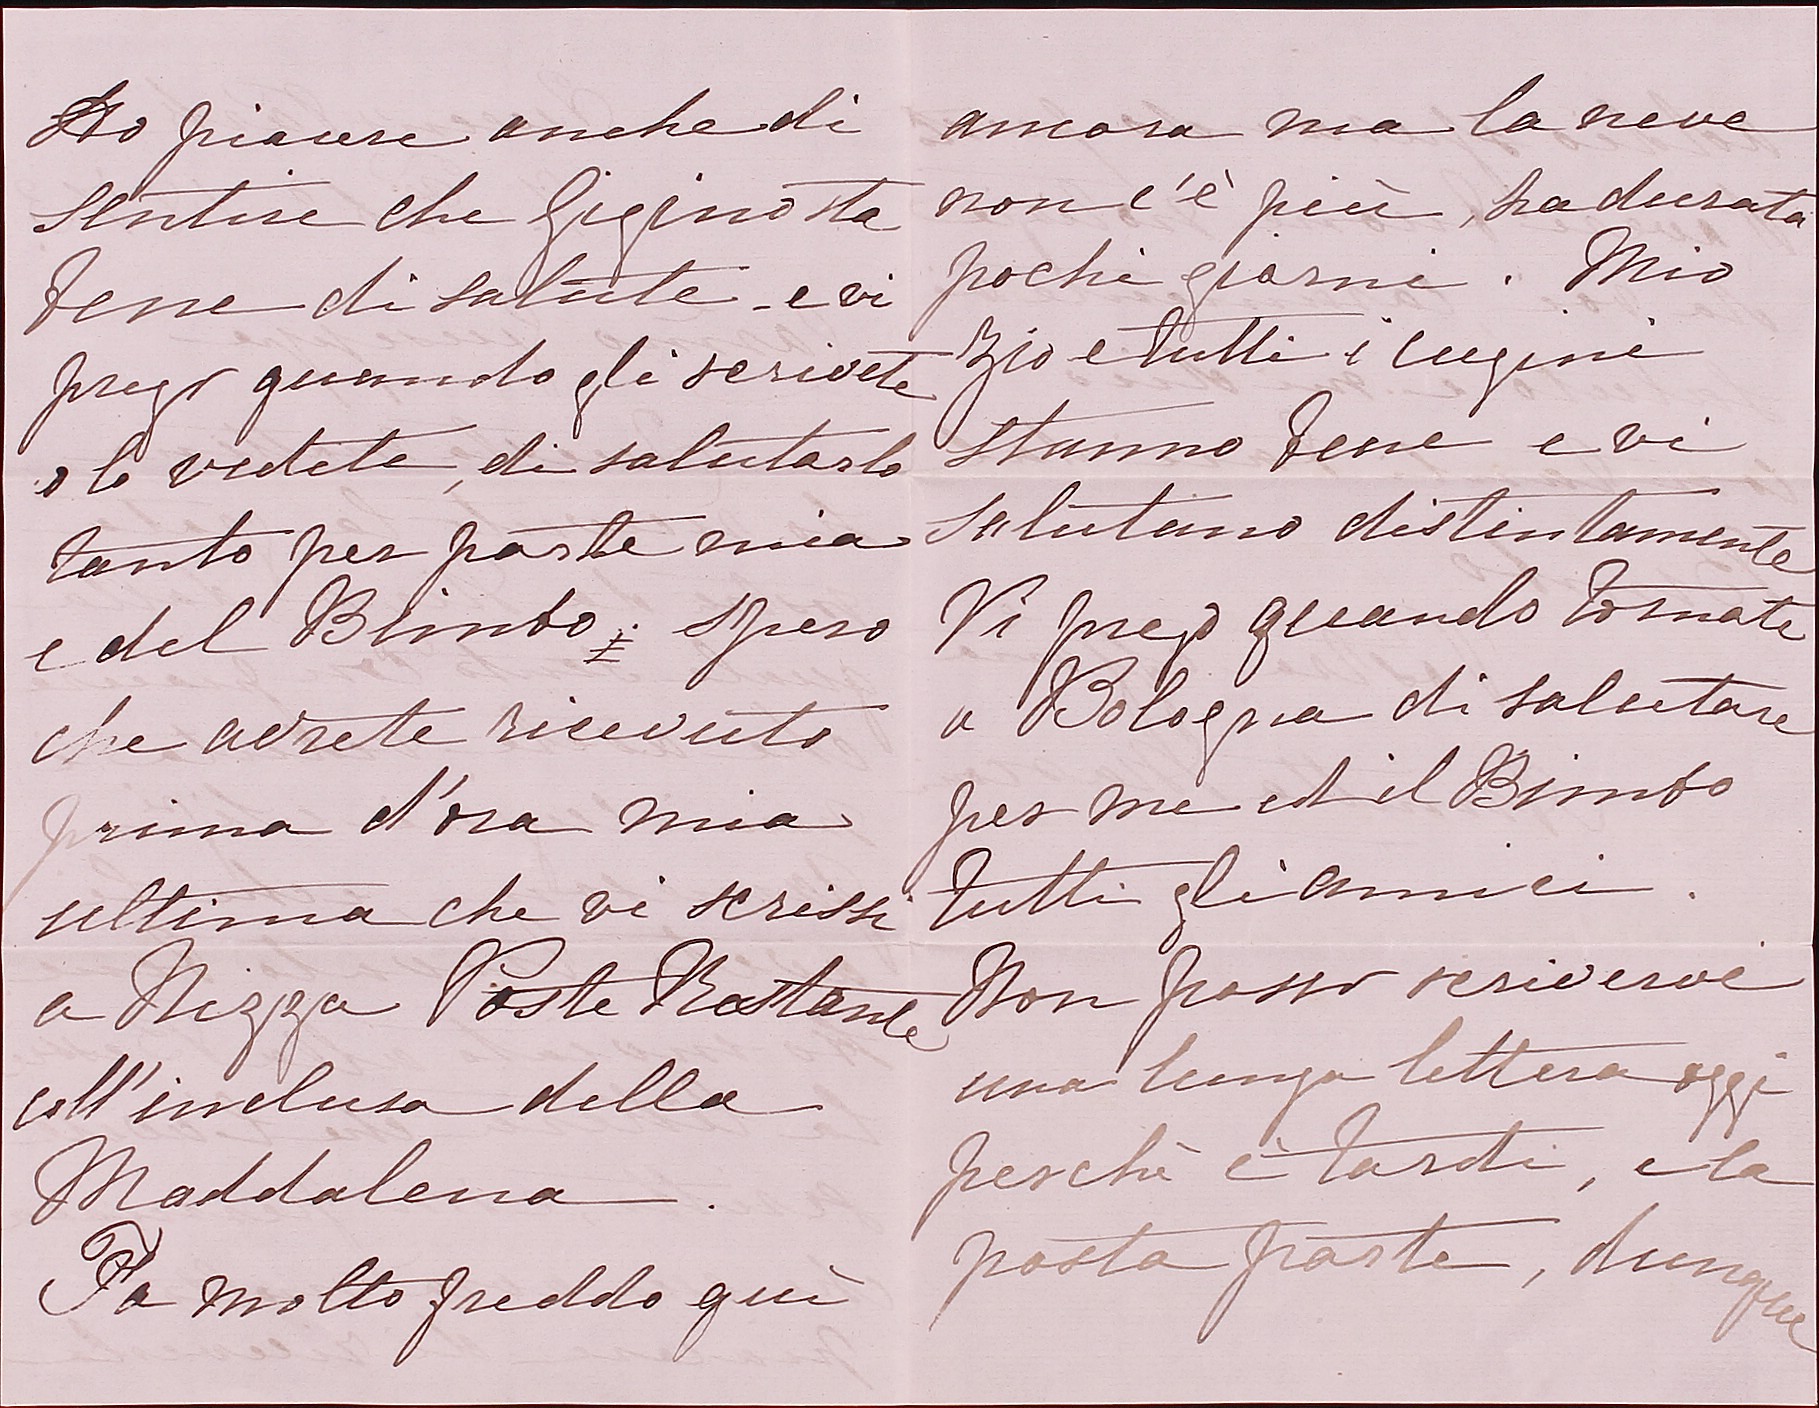 Ho piacere anche di
sentire che Gigino sta
bene di salute - e vi
prego quando gli scrivete
o lo vedete, di salutarlo
tanto per parte mia
e del Bimbo; spero
che avrete ricevuto
prima d'ora mia
ultima che vi scrissi
a Nizza Poste Restante
coll'inclusa della
Maddalena.
Fa molto freddo quì
ancora ma la neve
non c'è più, ha durata
pochi giorni. Mio
Zio e tutti i cugini
stanno bene e vi
salutano distintamente
Vi prego quando tornate
a Bologna di salutare
per me ed il Bimbo
tutti gli amici.
Non posso scrivervi
una lunga lettera oggi
perchè è tardi, e la
posta parte, dunque